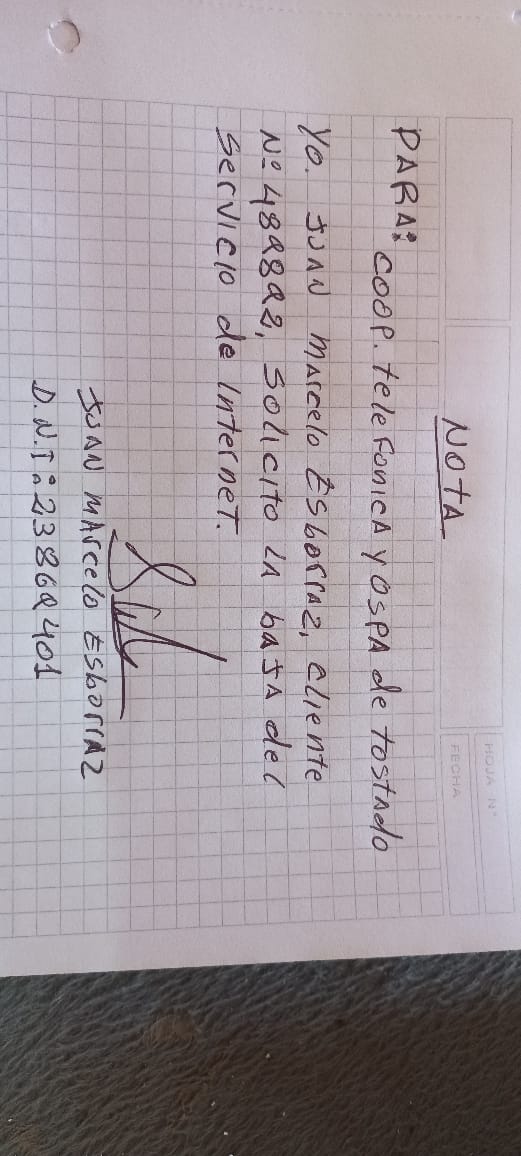 HOJA N°
FECHA
NOTA
PARA: COOP. telefonica y OSPA de tostado
Yo. JUAN Marcelo Esborraz, cliente
N: 489892, Solicito la baja del
Servicio de Internet.
JUAN MArcelo Esborraz
D.N.I: 23869401